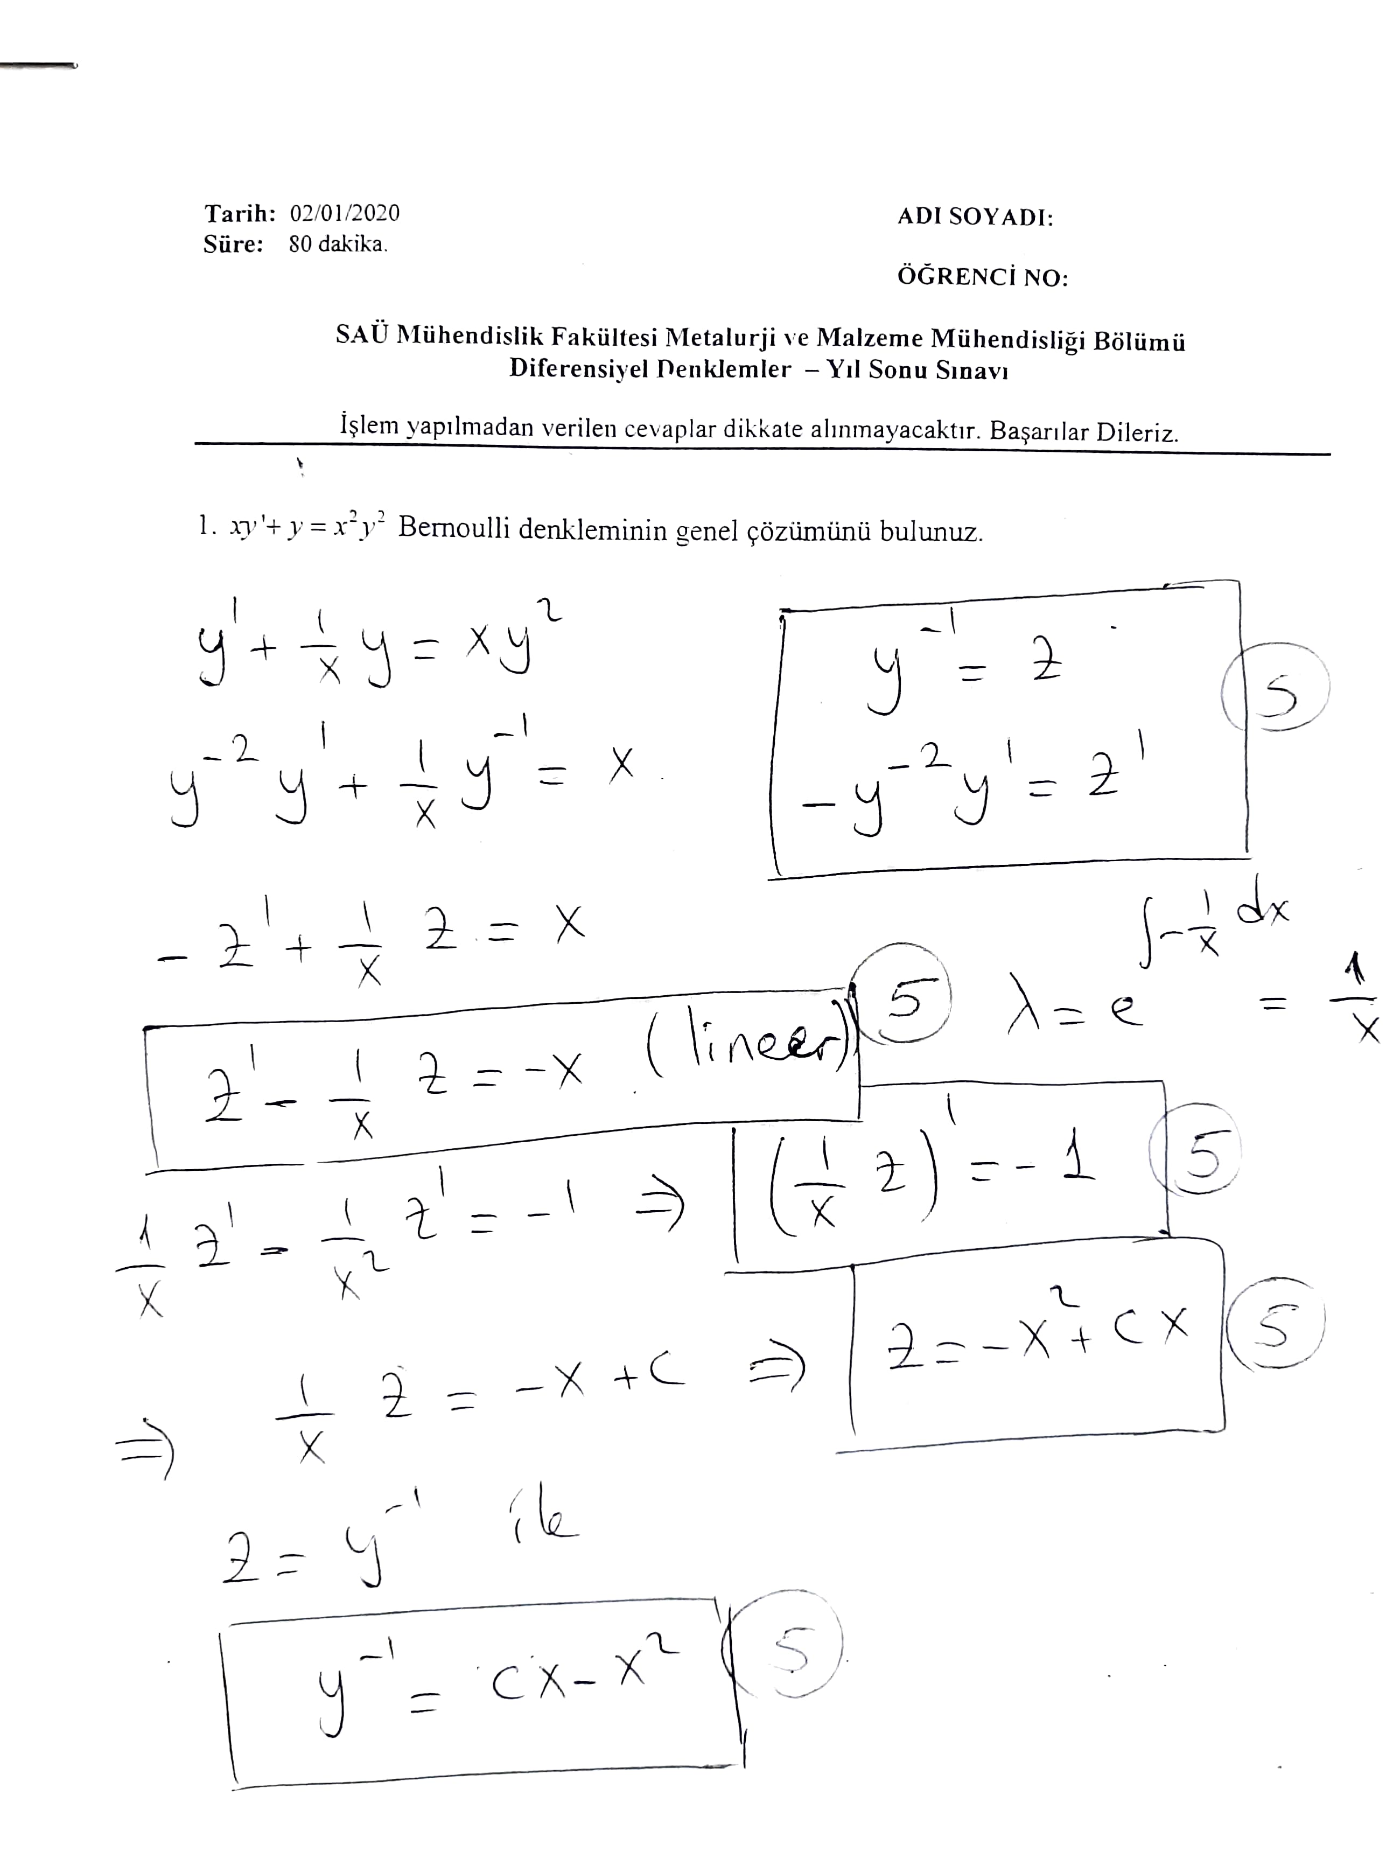 Tarih: 02/01/2020
Süre: 80 dakika.
ADI SOYADI:
ÖĞRENCİ NO:
SAÜ Mühendislik Fakültesi Metalurji ve Malzeme Mühendisliği Bölümü
Diferensiyel Denklemler – Yıl Sonu Sınavı
İşlem yapılmadan verilen cevaplar dikkate alınmayacaktır. Başarılar Dileriz.
1. xy'+ y = x²y² Bernoulli denkleminin genel çözümünü bulunuz.
y' + 1/x y = xy²
y⁻¹ = z
5
y⁻² y' + 1/x y⁻¹ = x
-y⁻² y' = z'
-z' + 1/x z = x
λ = e^∫-1/x dx = 1/x
z' - 1/x z = -x (lineer)
5
1/x z' - 1/x² z' = -1 ⇒ (1/x z)' = -1
5
⇒ 1/x z = -x + c ⇒ z = -x² + cx
5
z = y⁻¹ ile
y⁻¹ = cx - x²
5